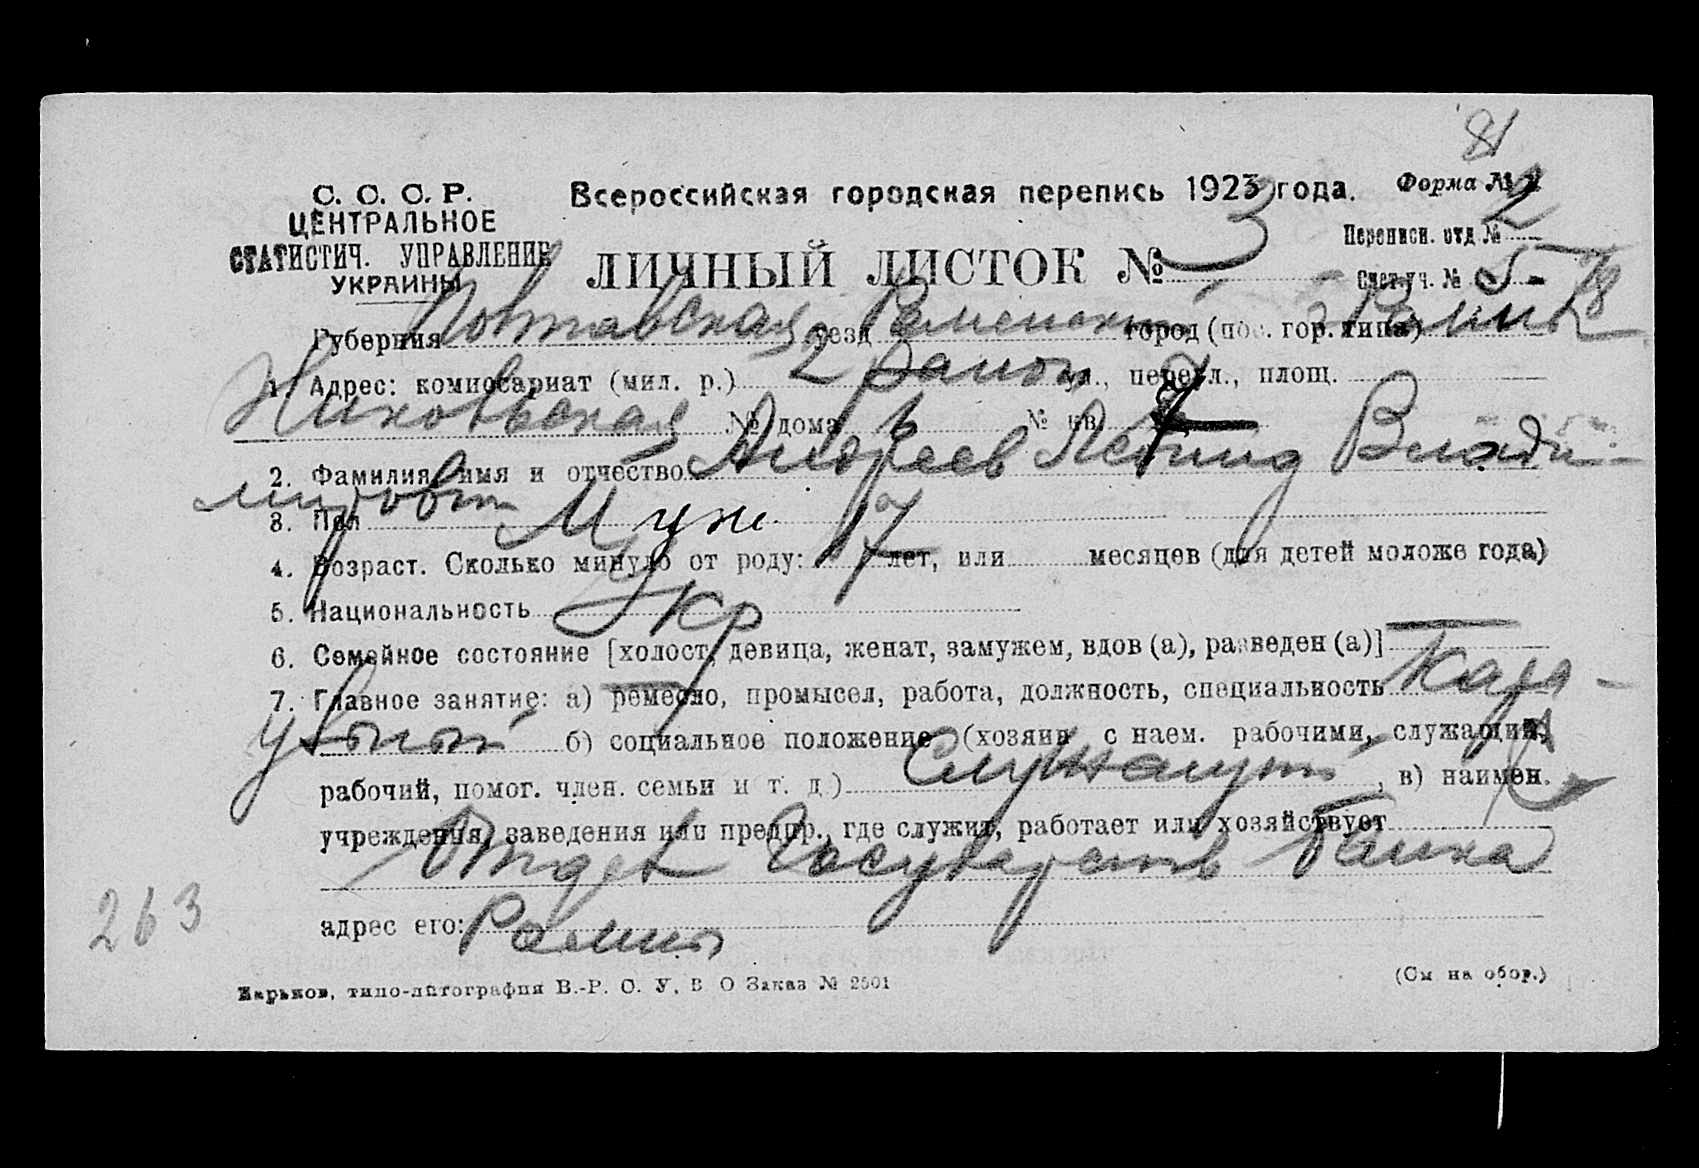 81
С. С. С. Р.
ЦЕНТРАЛЬНОЕ
СТАТИСТИЧ. УПРАВЛЕНИЕ
УКРАИНЫ
Всероссийская городская перепись 1923 года.
Форма № 2
ЛИЧНЫЙ ЛИСТОК № 3
Переписн. отд № 2
Счетн. уч. № 5 - 78
Губерния Полтавская уезд Роменский город (пос. гор. типа) Ромны
1. Адрес: комиссариат (мил. р.) 2 район ул., переул., площ.
№ дома 6 № кв. 7
2. Фамилия, имя и отчество Андреев Леонид Влади-
мирович
3. Пол Муж
4. Возраст. Сколько минуло от роду: 17 лет, или месяцев (для детей моложе года)
5. Национальность Укр
6. Семейное состояние [холост, девица, женат, замужем, вдов (а), разведен (а)]
7. Главное занятие: а) ремесло, промысел, работа, должность, специальность Кара-
ульный б) социальное положение (хозяин с наем. рабочими, служащий,
рабочий, помог. член. семьи и т. д.) Служащий, в) наимен.
учреждения, заведения или предпр., где служит, работает или хозяйствует
Отдел Государств Банка
263
адрес его: Ромны
Харьков, типо-литография В.-Р. С. У, В О Заказ № 2501
(См на обор.)